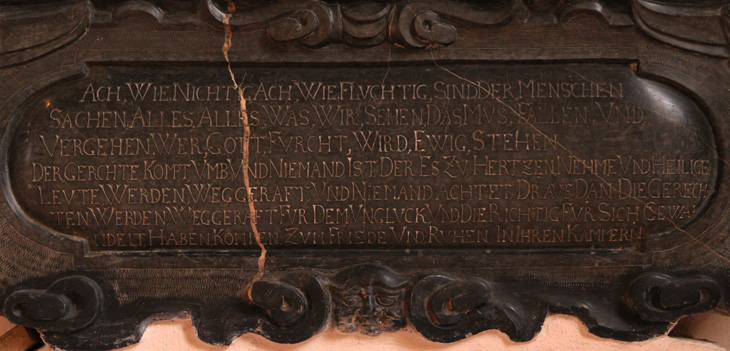 ACH, WIE, NICHTIG, ACH, WIE, FLVCHTIG, SIND DER MENSCHEN
SACHEN, ALLES, ALLES WAS, WIR, SEHEN DAS MVS, FALLEN, VND
VERGEHEN, WER, GOTT, FVRCHT, WIRD, EWIG, STEHEN
DER GERCHTE KOMPT VMB VND NIEMAND IST DER ES ZV HERTZEN NEHME VND HEILIGE
LEVTE WERDEN WEGGERAFT VND NIEMAND ACHTET DRAVF DAN DIE GERECH
TEN WERDEN WEGGERAFT FVR DEM VNGLVCK VND DIE RICHTIG FVR SICH GEWA
NDELT HABEN KOMMEN ZVM FRIEDE VND RVHEN IN IHREN KAMMERN